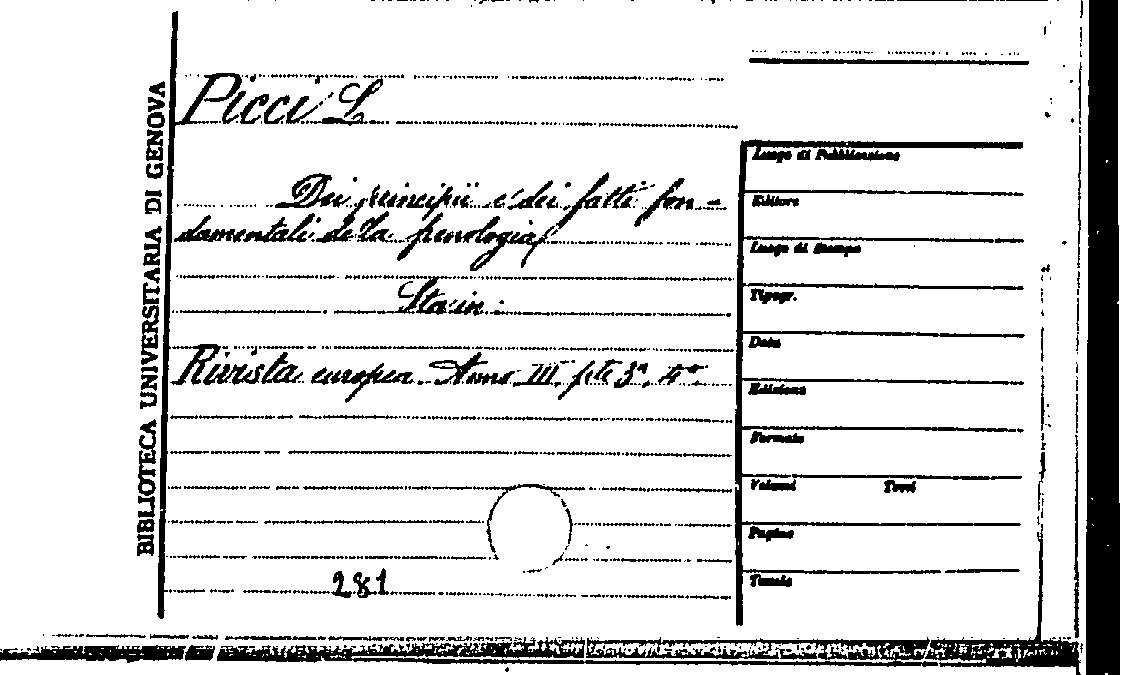 BIBLIOTECA UNIVERSITARIA DI GENOVA
Picci L.
Dei principii e dei fatti fon-
damentali della frenologia
Sta in:
Rivista europea. Anno III. pte 3ª. 4ª.
281
Luogo di Pubblicazione
Editore
Luogo di Stampa
Tipogr.
Data
Edizione
Formato
Volumi Tomi
Pagine
Tavole